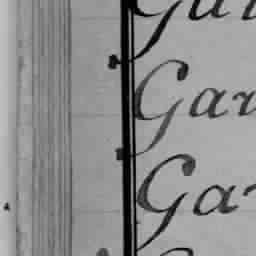 Gar
Gar
Gar